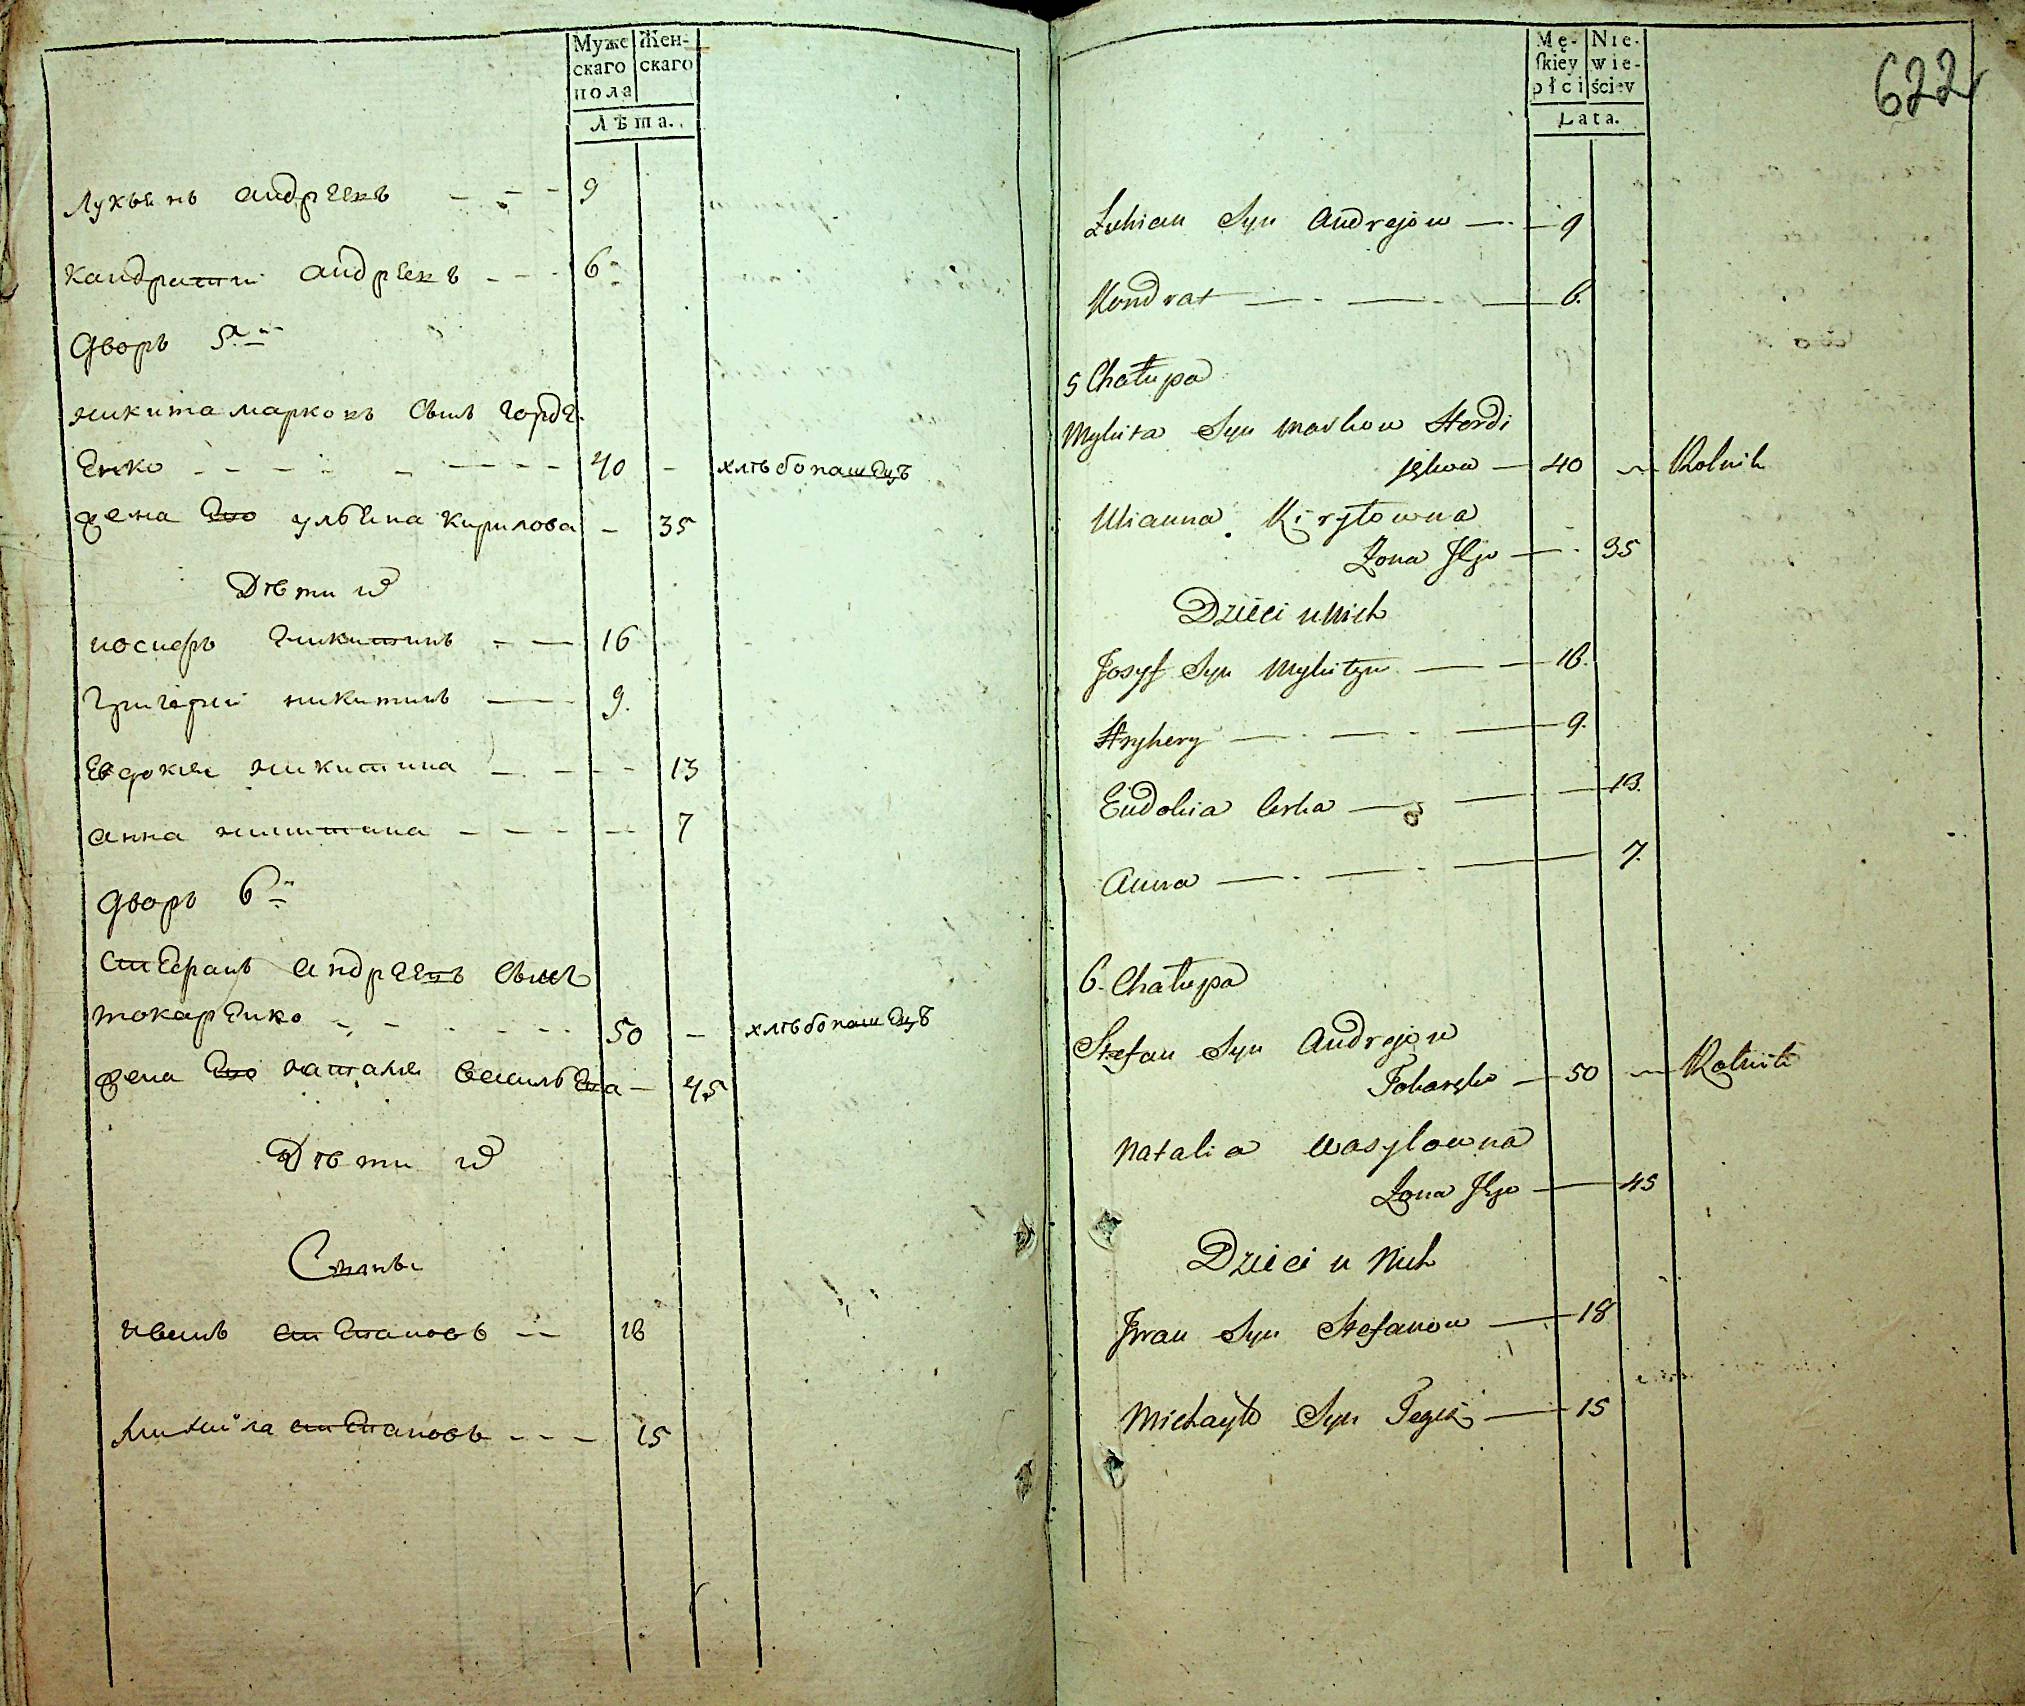 Муже
скаго
пола
Жен-
скаго
Лѣта.
Лукьянъ андреевъ - - - 9
Кандратий андреевъ - - - 6
Дворъ 5й
Никита марковъ сынъ горде
енко - - - - 40 - хлѣбопашецъ
жена его ульяна кирилова - 35
Дѣти ихъ
иосифъ никитинъ - - 16
григорий никитинъ - - 9.
Евдокия никитина - - - 13
анна никитина - - - - 7
Дворъ 6й
стефанъ андреевъ сынъ
токаренко - - - - 50 - хлѣбопашецъ
жена его наталия василъева - 45
Дѣти ихъ
Сыны
иванъ степановъ - - 18
Михайла степановъ - - - 15
Mę-
ſkiey
płci
Nie-
wie-
ściey
Lata.
622
Łukian Syn Andrejow - - 9
Kondrat - - - 6.
5 Chałupa
Mykita Syn Markow Hordi
jęko - 40 ~ Rolnik
Ulianna Kiryłowna
Żona Jego - - 35
Dzieci u Nich
Josyf Syn Mykityn - - 16.
Hryhory - - - 9.
Eudokia Corka - - - 13.
Anna - - - - 7.
6. Chałupa
Stefan Syn Andrejow
Tokaręko - 50 ~ Rolnik
Natalia Wasylowna
Żona Jego - 45
Dzieci u Nich
Jwan Syn Stefanow - 18
Michayło Syn Tegoż - 15